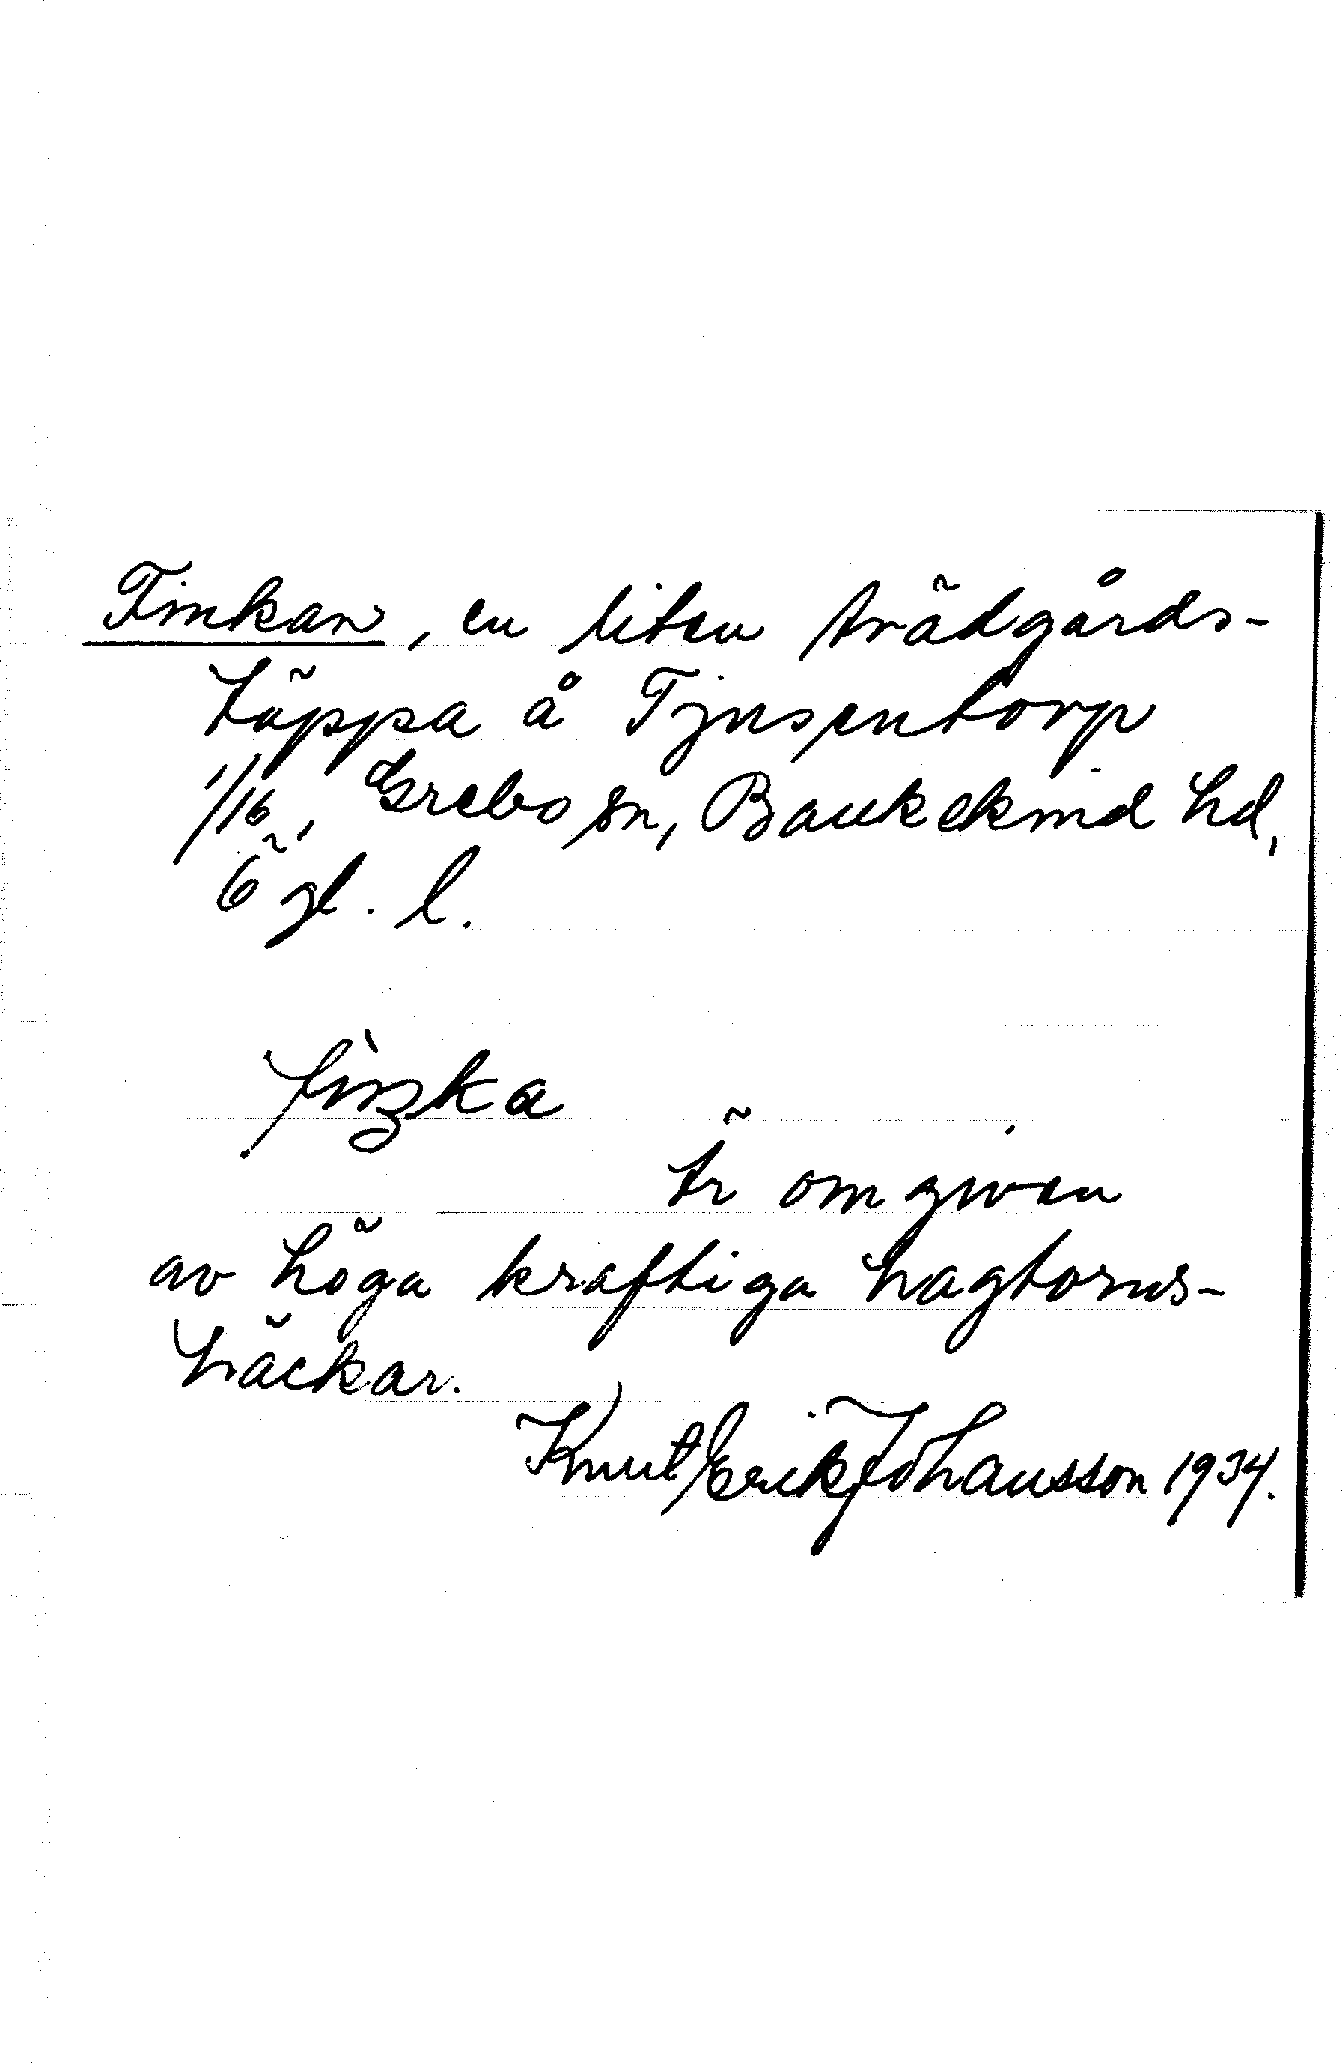 Finkan, en liten trädgårds-
täppa å Tjusentorp
1/16, Grebo sn, Bankekind hd,
Ögl. l.
fiŋka
Är omgiven
av höga kraftiga hagtorns-
häckar.
Knut Erik Johansson 1934.